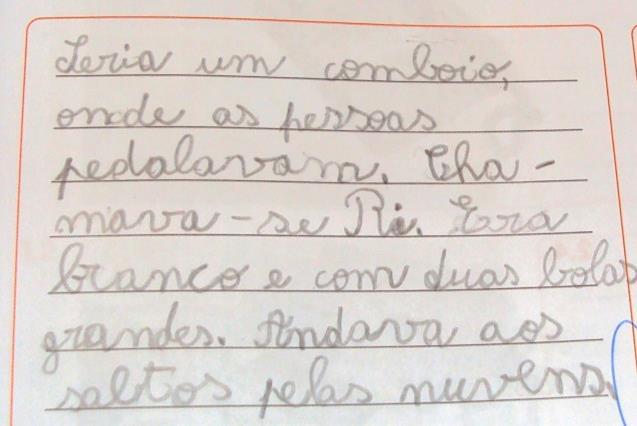 Seria um comboio,
onde as pessoas
pedalavam. Cha-
mava-se Ri. Era
branco e com duas bolas
grandes. Andava aos
saltos pelas nuvens.